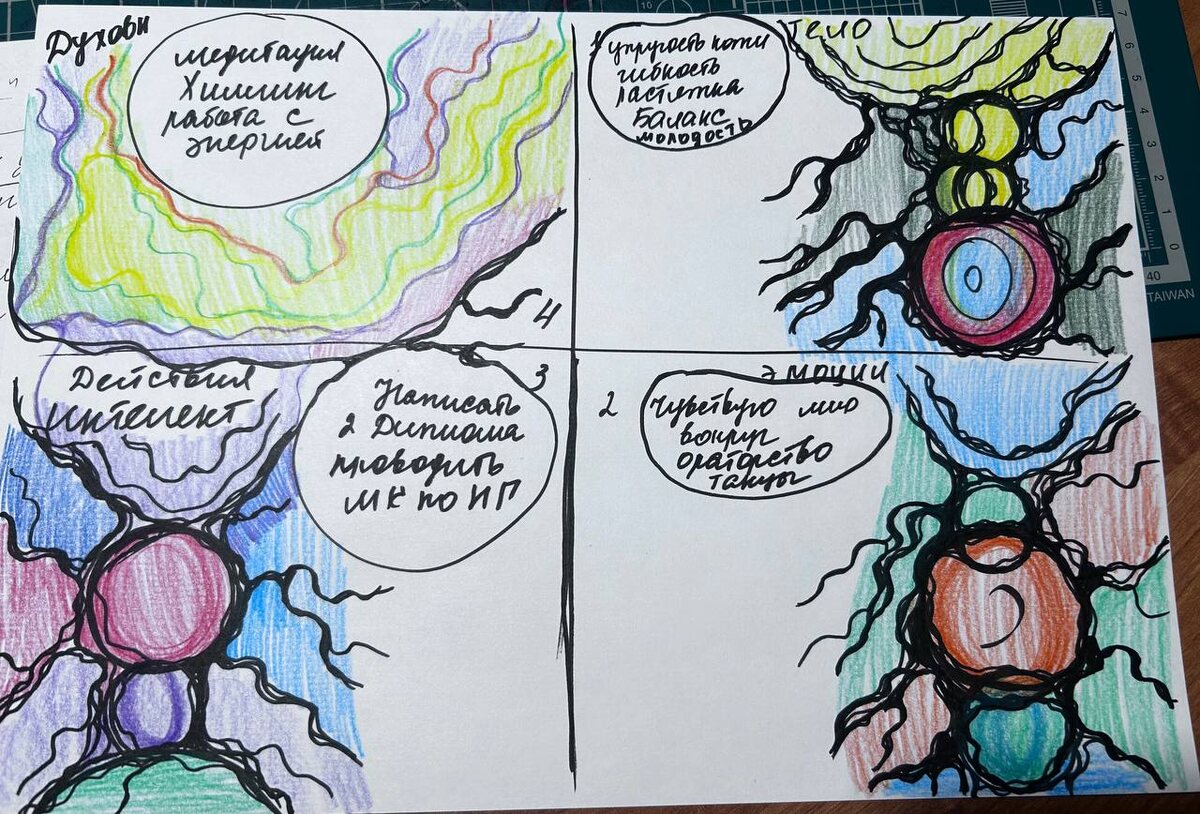 Духовн
медитация
Хиллинг
работа с
энергией
4
1
Тело
упругость кожи
гибкость
растяжка
Баланс
молодость
Действия
интелект
3
Написать
2 Диплома
проводить
МК по НГ
эмоции
2
Чувствую мир
вокруг
ораторство
танцы
7
6
5
4
3
2
1
0
40
TAIWAN